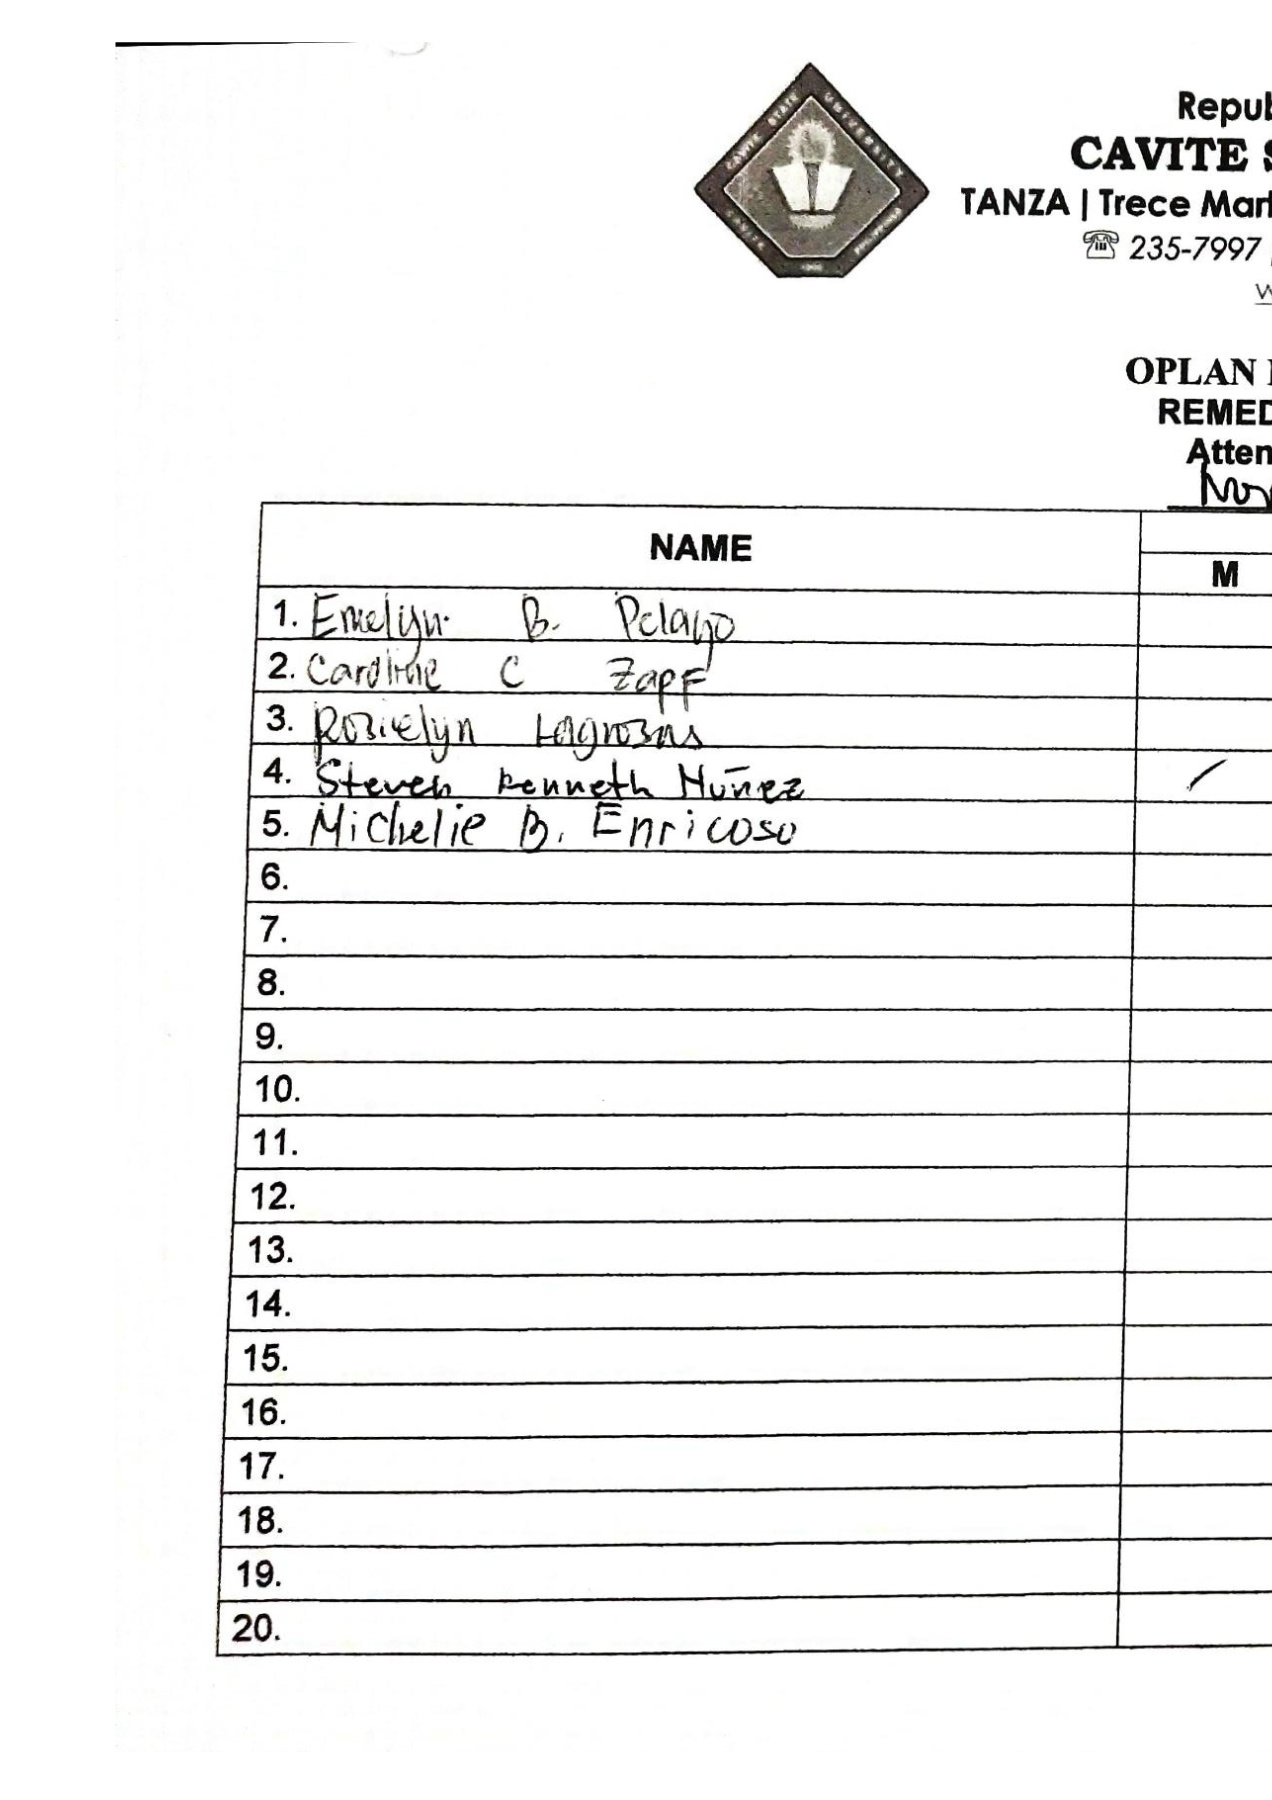 CAVITE STATE UNIVERSITY
Repub
CAVITE S
TANZA | Trece Mart
235-7997
W
OPLAN
REMED
Atten
NAME
M
1. Emelyn B. Pelayo
2. Caroline C Zapf
3. Rosielyn Lagrosas
4. Steven Kenneth Nuñez /
5. Michelie B. Enricoso
6.
7.
8.
9.
10.
11.
12.
13.
14.
15.
16.
17.
18.
19.
20.